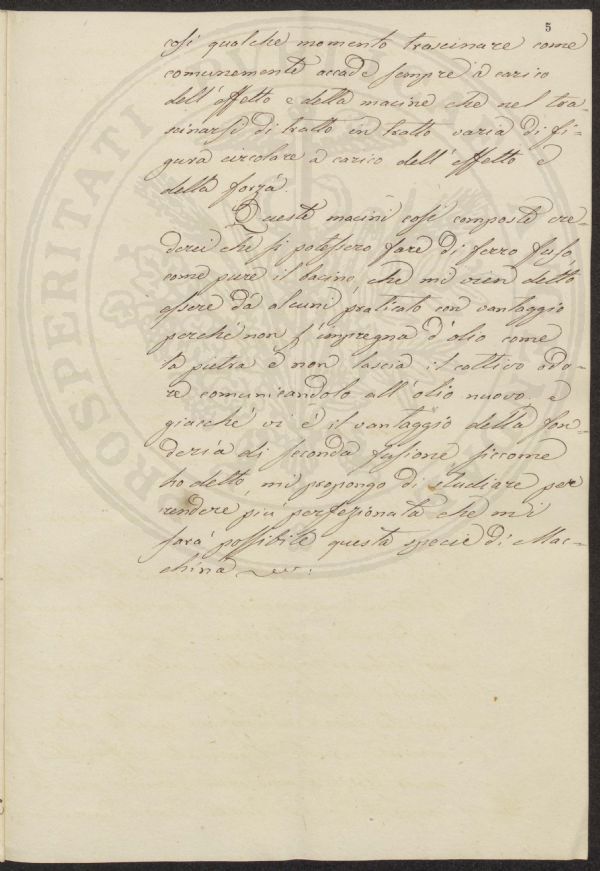 5
così qualche momento trascinare come
comunemente accade sempre à carico
dell'effetto e della macine che nel tra-
scinarsi di tratto in tratto varia di fi-
gura circolare à carico dell'effetto e
della forza.
Queste macini così composte cre-
derei che si potessero fare di ferro fuso,
come pure il bacino, che mi vien detto
essere dà alcuni praticato con vantaggio
perchè non s'impregna d'olio come
la pietra e non lascia il cattivo odo-
re comunicandolo all'olio nuovo. e
giacchè vi è il vantaggio della fon-
deria di seconda fusione siccome
ho detto, mi propongo di studiare per
rendere più perfezionata che mi
sarà possibile questa specie di Mac-
china
PROSPERITATI